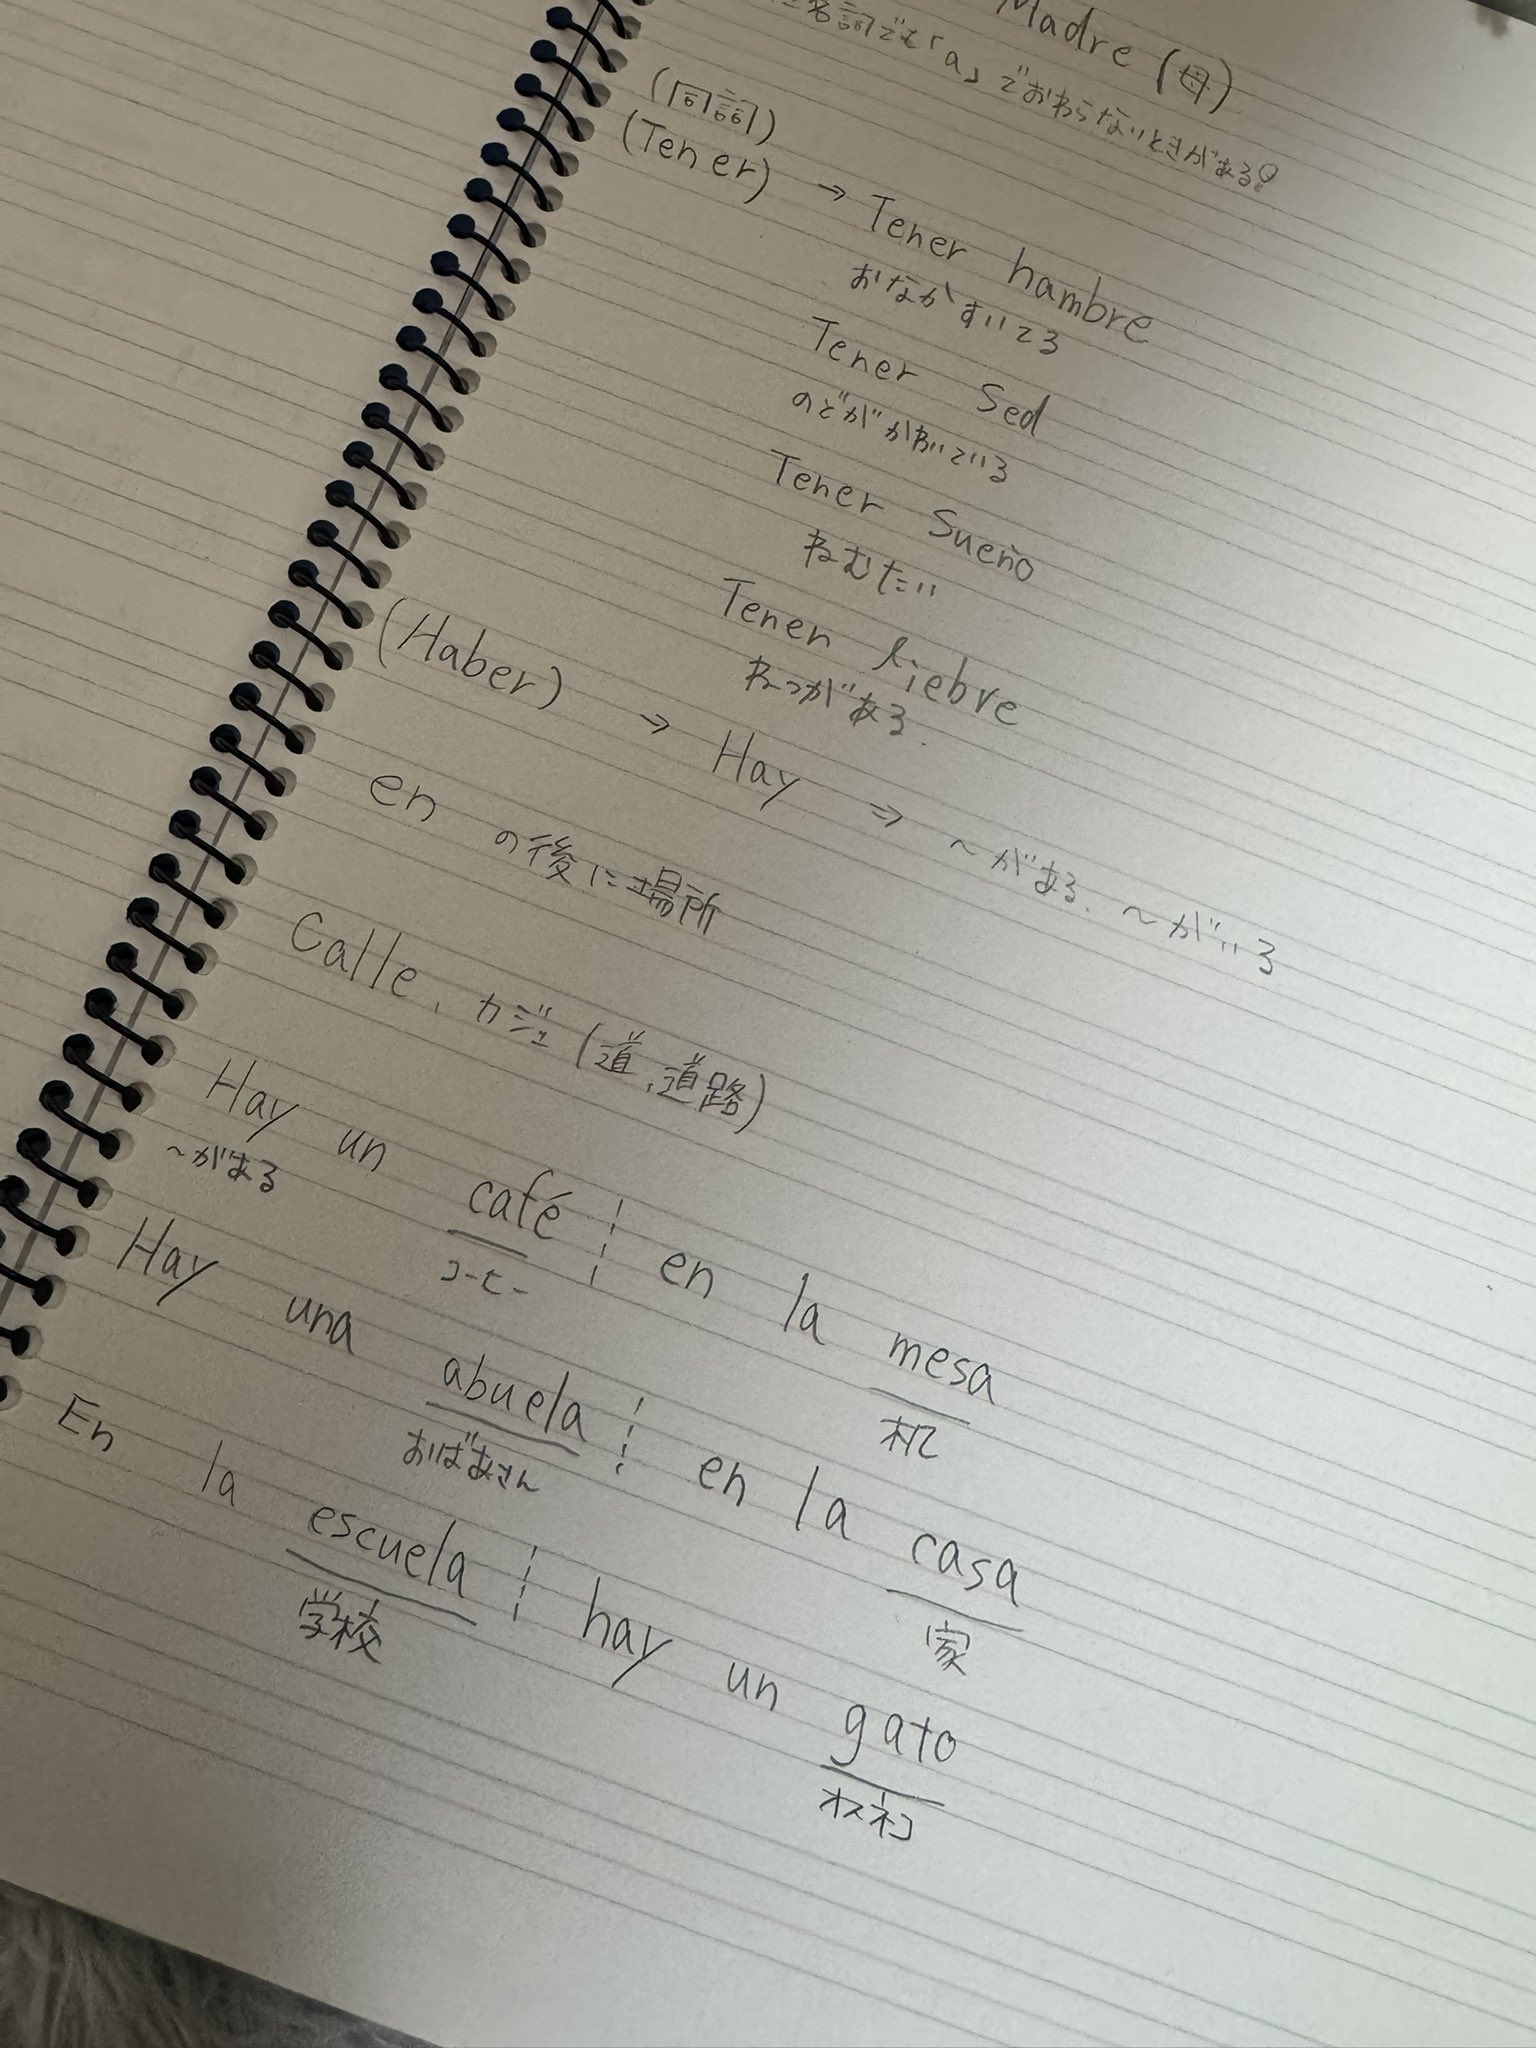 Madre (母)
名詞でも「a」でおわらないときがある!
(同詞)
(Tener) → Tener hambre
おなかすいてる
Tener Sed
のどがかわいている
Tener Sueño
ねむたい
Tener liebre
ねつがある.
(Haber) → Hay ⇒ ~がある. ~がいる
en の後に場所
Calle, カジェ (道、道路)
Hay un café ¦ en la mesa
~がある コーヒー 机
Hay una abuela ¦ en la casa
おばあさん 家
En la escuela ¦ hay un gato
学校 オスネコ